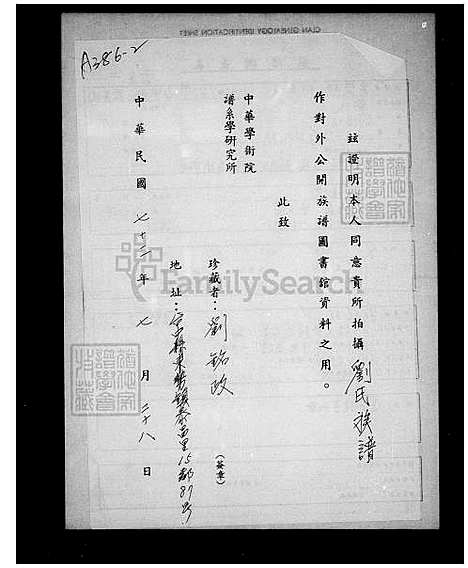 CLAN GENEALOGY IDENTIFICATION SHEET
A386-2
玆證明本人同意貴所拍攝劉氏族譜
作對外公開族譜圖書館資料之用。
此致
中華學術院
譜系學研究所
珍藏者：劉銘政(簽章)
地址：台中縣東勢鎮泰昌里15鄰87号
中華民國七十二年七月二十八日
FamilySearch